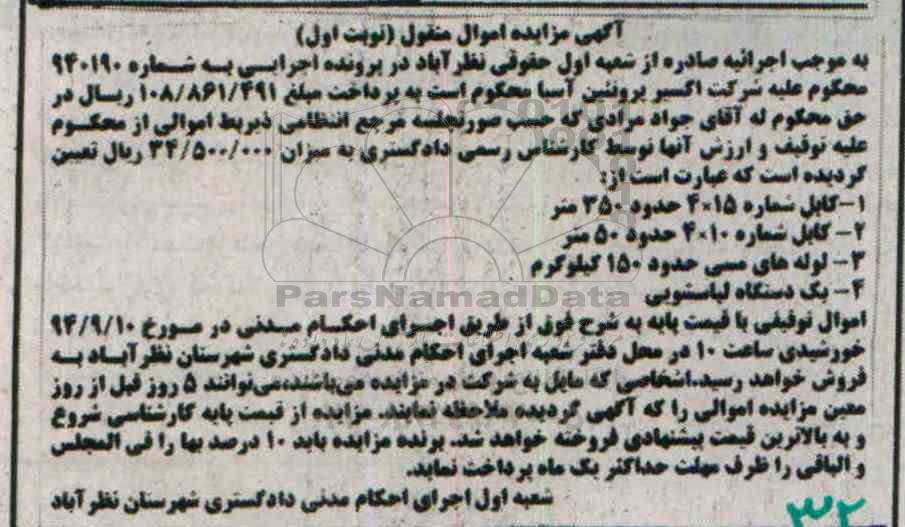 آگهی مزایده اموال منقول (نوبت اول)
به موجب اجرائیه صادره از شعبه اول حقوقی نظرآباد در پرونده اجرایی به شماره ۹۴۰۱۹۰
محکوم علیه شرکت اکسیر پروتئین آسیا محکوم است به پرداخت مبلغ ۱۰۸/۸۶۱/۴۹۱ ریال در
حق محکوم له آقای جواد مرادی که حسب صورتجلسه مرجع انتظامی ذیربط اموالی از محکوم
علیه توقیف و ارزش آنها توسط کارشناس رسمی دادگستری به میزان ۳۴/۵۰۰/۰۰۰ ریال تعیین
گردیده است که عبارت است از:
۱-کابل شماره ۱۵×۴ حدود ۳۵۰ متر
۲- کابل شماره ۱۰×۴ حدود ۵۰ متر
۳- لوله های مسی حدود ۱۵۰ کیلوگرم
۴- یک دستگاه لباسشویی
ParsNamadData
اموال توقیفی با قیمت پایه به شرح فوق از طریق اجرای احکام مدنی در مورخ ۹۴/۹/۱۰
خورشیدی ساعت ۱۰ در محل دفتر شعبه اجرای احکام مدنی دادگستری شهرستان نظرآباد به
فروش خواهد رسید.اشخاصی که مایل به شرکت در مزایده می‌باشند،می‌توانند ۵ روز قبل از روز
معین مزایده اموالی را که آگهی گردیده ملاحظه نمایند. مزایده از قیمت پایه کارشناسی شروع
و به بالاترین قیمت پیشنهادی فروخته خواهد شد. برنده مزایده باید ۱۰ درصد بها را فی المجلس
و الباقی را ظرف مهلت حداکثر یک ماه پرداخت نماید.
شعبه اول اجرای احکام مدنی دادگستری شهرستان نظرآباد
۳۲